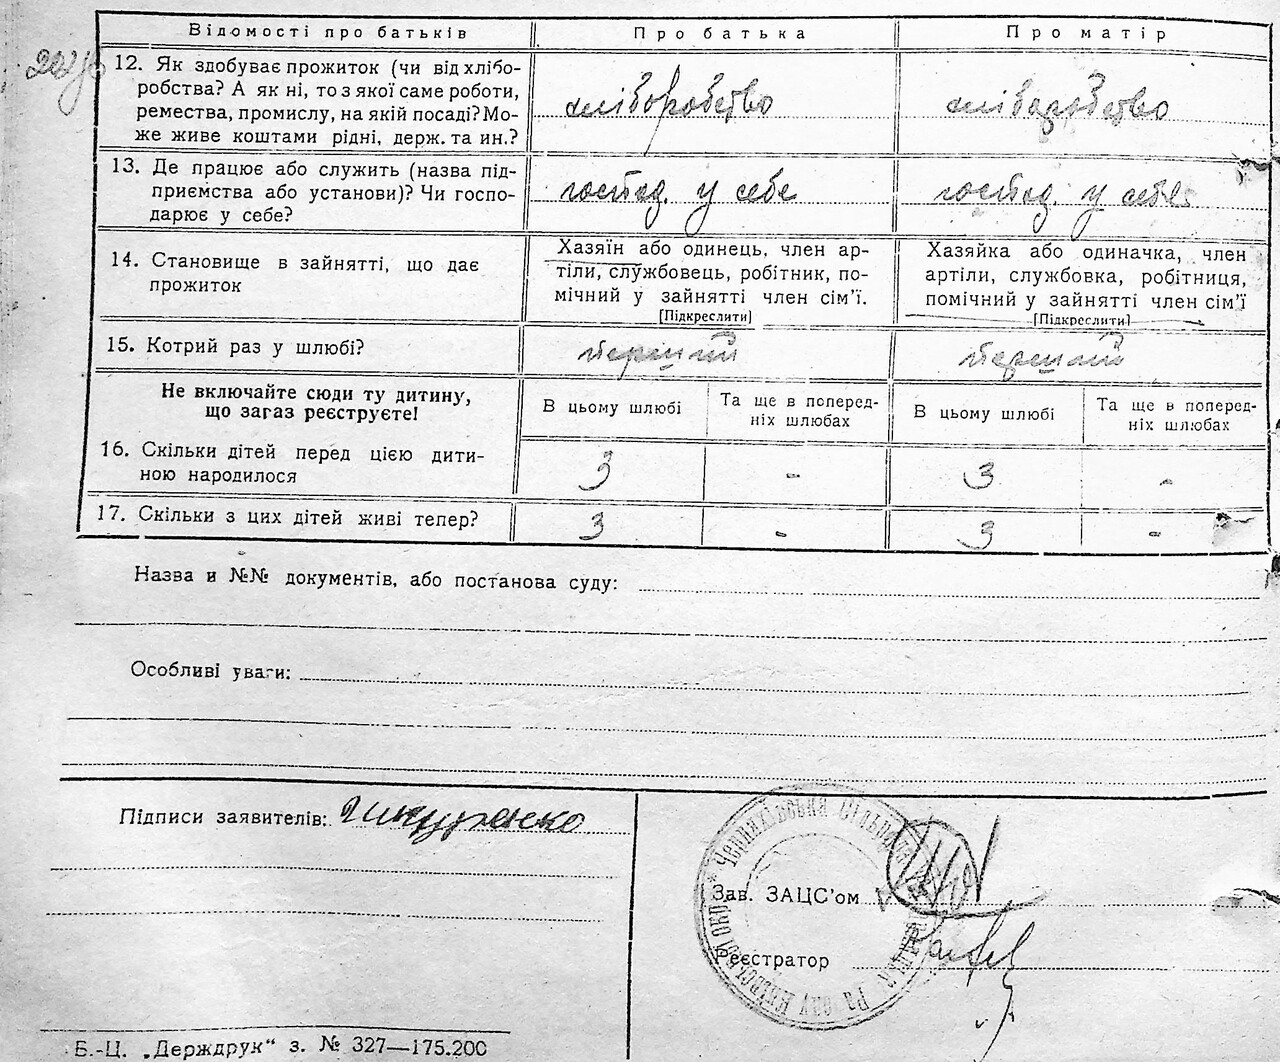 Відомості про батьків Про батька Про матір
12. Як здобуває прожиток (чи від хлібо-
робства? А як ні, то з якої саме роботи,
ремества, промислу, на якій посаді? Мо-
же живе коштами рідні, держ. та ин.?
хліборобство хліборобство
13. Де працює або служить (назва під-
приємства або установи)? Чи госпо-
дарює у себе?
господ. у себе господ. у себе
14. Становище в зайнятті, що дає
прожиток
Хазяїн або одинець, член ар-
тіли, службовець, робітник, по-
мічний у зайнятті член сім’ї.
[Підкреслити]
Хазяйка або одиначка, член
артіли, службовка, робітниця,
помічний у зайнятті член сім’ї
[Підкреслити]
15. Котрий раз у шлюбі? перший перший
Не включайте сюди ту дитину,
що загаз реєструєте!
В цьому шлюбі Та ще в поперед-
ніх шлюбах
В цьому шлюбі Та ще в поперед-
ніх шлюбах
16. Скільки дітей перед цією дити-
ною народилося
3 - 3 -
17. Скільки з цих дітей живі тепер? 3 - 3 -
Назва и №№ документів, або постанова суду:
Особливі уваги:
Підписи заявителів:
Зав. ЗАЦС’ом
Реєстратор
Б.-Ц. „Держдрук“ з. № 327—175.200